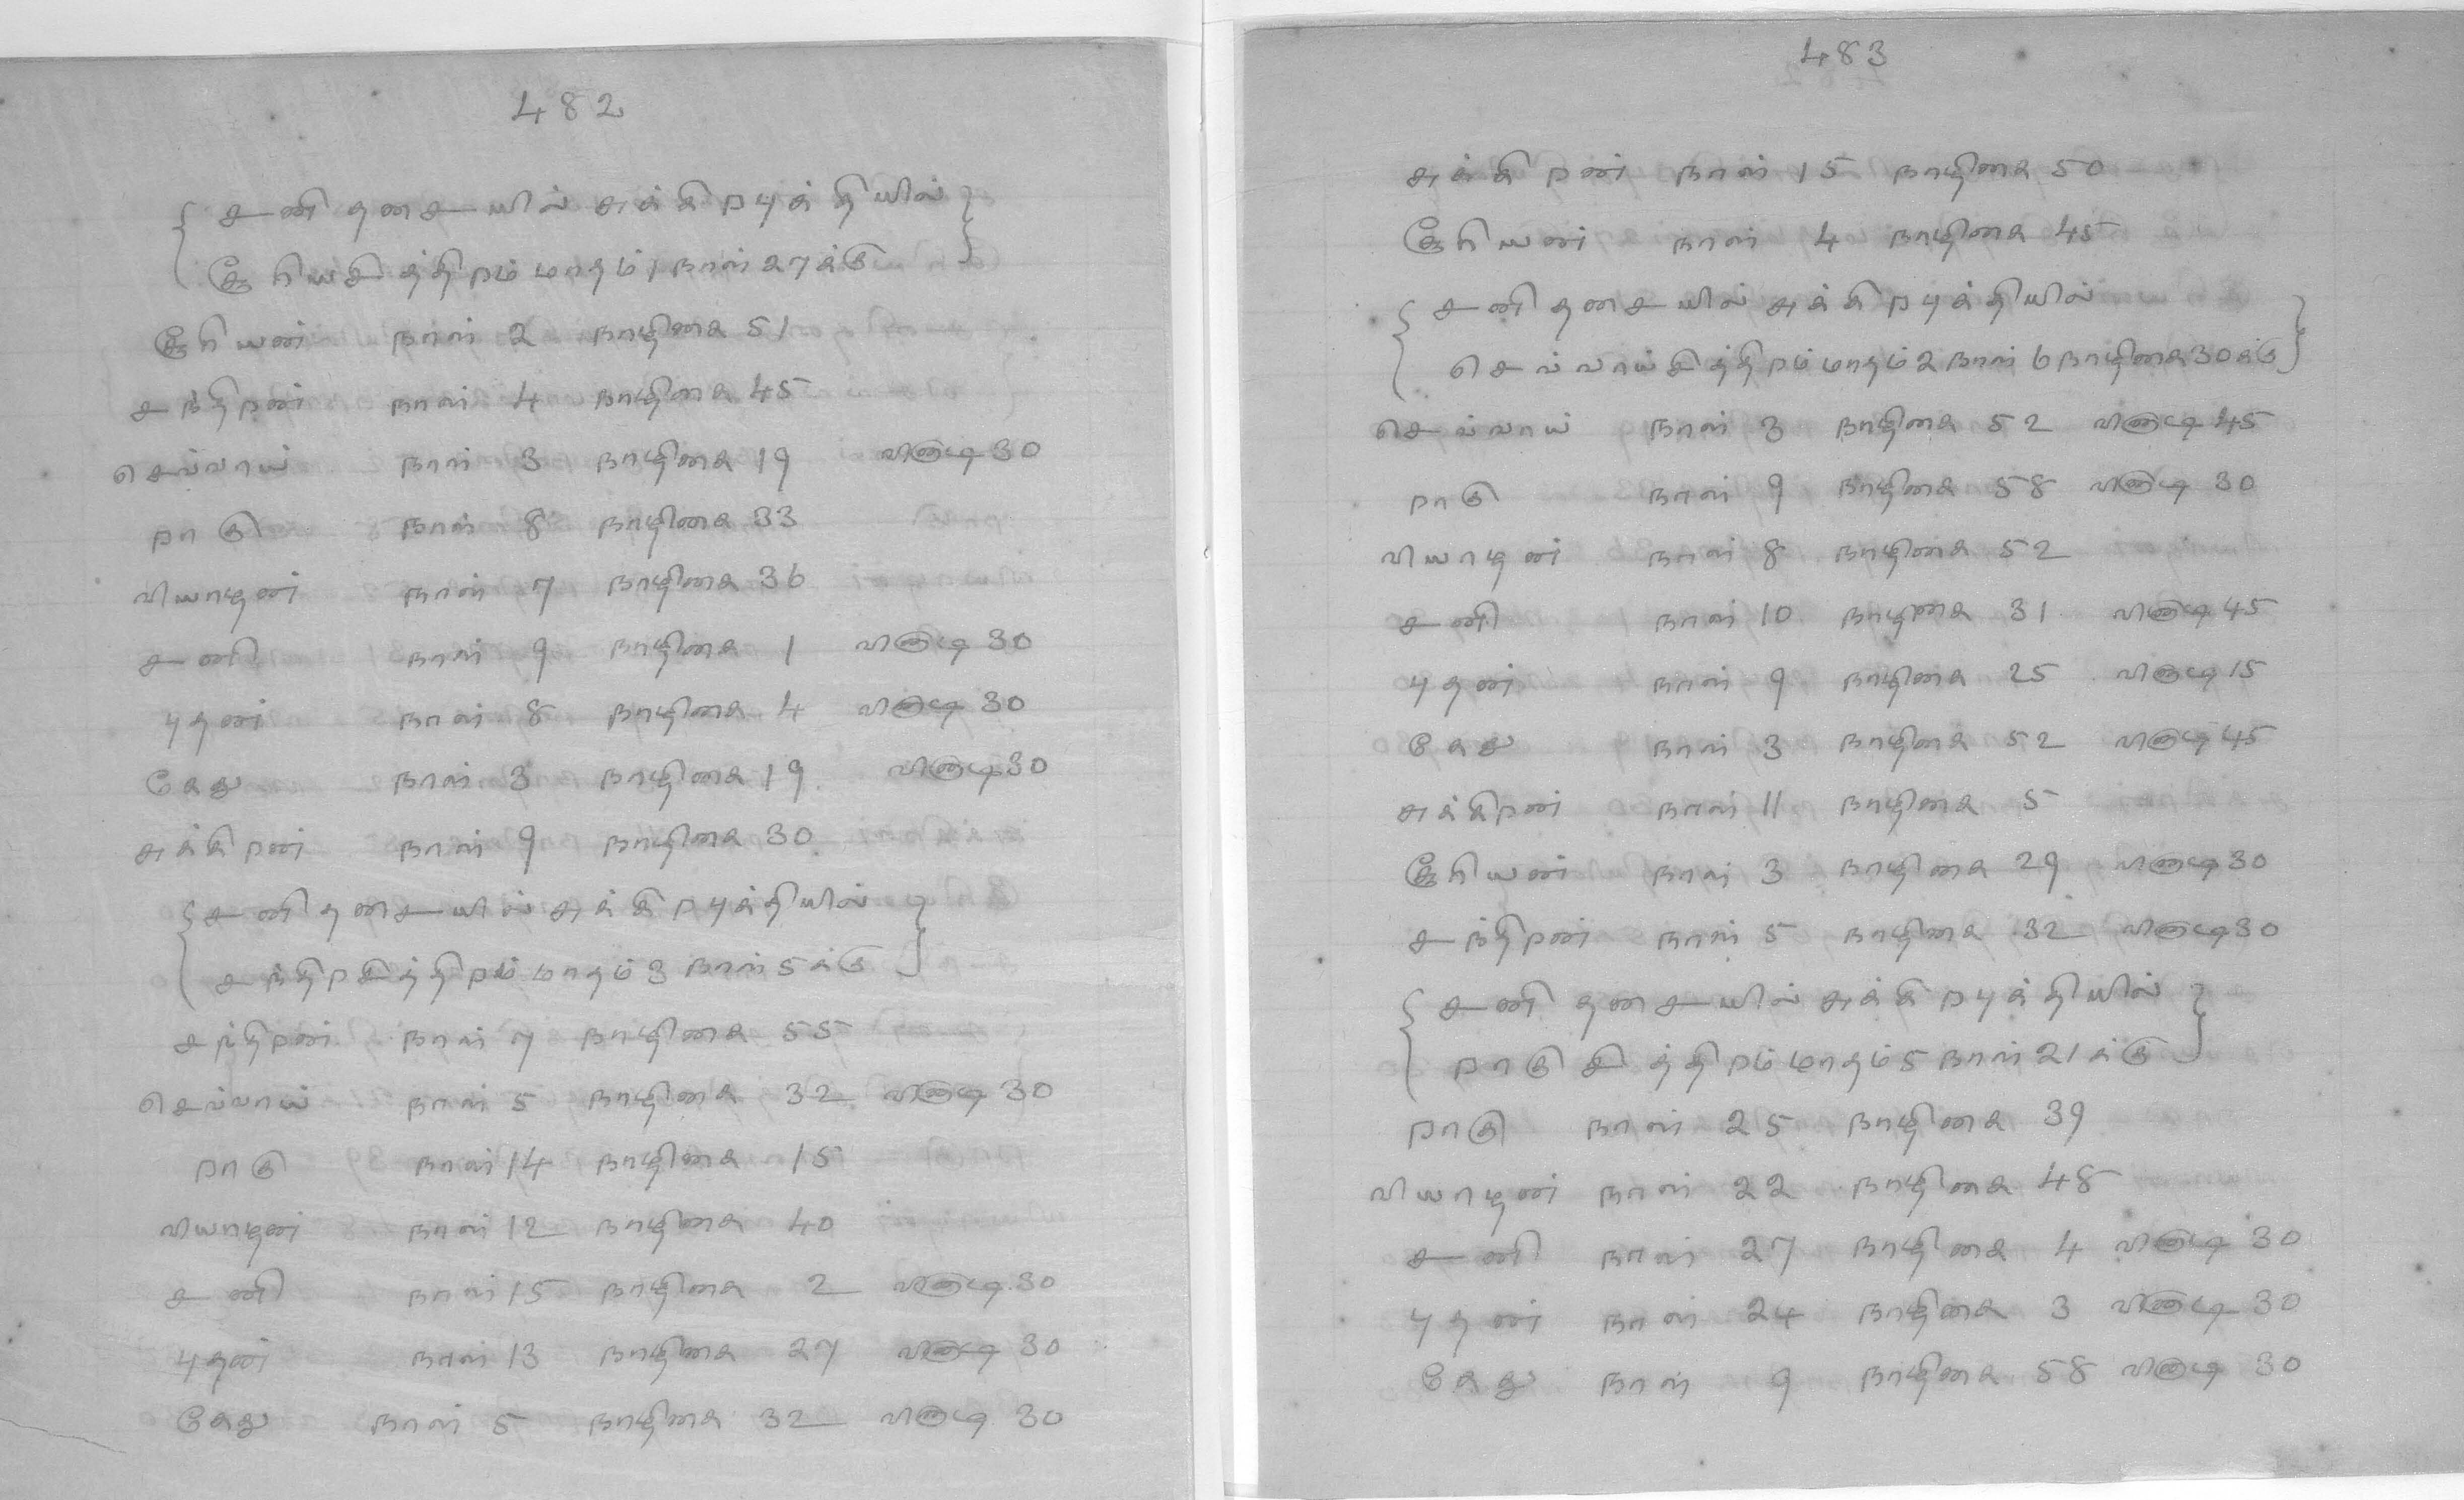 482
{ சனி தசையில் சுக்கிரபுக்தியில் }
{ சூரியசித்திரம் மாதம் 1 நாள் 27க்கு }
சூரியன் நாள் 2 நாழிகை 51
சந்திரன் நாள் 4 நாழிகை 45
செவ்வாய் நாள் 3 நாழிகை 19 விநாடி 30
ராகு நாள் 8 நாழிகை 33
வியாழன் நாள் 7 நாழிகை 36
சனி நாள் 9 நாழிகை 1 விநாடி 30
புதன் நாள் 8 நாழிகை 4 விநாடி 30
கேது நாள் 3 நாழிகை 19 விநாடி 30
சுக்கிரன் நாள் 9 நாழிகை 30
{ சனி தசையில் சுக்கிரபுக்தியில் }
{ சந்திரசித்திரம் மாதம் 3 நாள் 5க்கு }
சந்திரன் நாள் 7 நாழிகை 55
செவ்வாய் நாள் 5 நாழிகை 32 விநாடி 30
ராகு நாள் 14 நாழிகை 15
வியாழன் நாள் 12 நாழிகை 40
சனி நாள் 15 நாழிகை 2 விநாடி 30
புதன் நாள் 13 நாழிகை 27 விநாடி 30
கேது நாள் 5 நாழிகை 32 விநாடி 30
483
சுக்கிரன் நாள் 15 நாழிகை 50
சூரியன் நாள் 4 நாழிகை 45
{ சனி தசையில் சுக்கிரபுக்தியில் }
{ செவ்வாய்சித்திரம் மாதம் 2 நாள் 6 நாழிகை 30க்கு }
செவ்வாய் நாள் 3 நாழிகை 52 விநாடி 45
ராகு நாள் 9 நாழிகை 58 விநாடி 30
வியாழன் நாள் 8 நாழிகை 52
சனி நாள் 10 நாழிகை 31 விநாடி 45
புதன் நாள் 9 நாழிகை 25 விநாடி 15
கேது நாள் 3 நாழிகை 52 விநாடி 45
சுக்கிரன் நாள் 11 நாழிகை 5
சூரியன் நாள் 3 நாழிகை 29 விநாடி 30
சந்திரன் நாள் 5 நாழிகை 32 விநாடி 30
{ சனி தசையில் சுக்கிரபுக்தியில் }
{ ராகு சித்திரம் மாதம் 5 நாள் 21க்கு }
ராகு நாள் 25 நாழிகை 39
வியாழன் நாள் 22 நாழிகை 48
சனி நாள் 27 நாழிகை 4 விநாடி 30
புதன் நாள் 24 நாழிகை 3 விநாடி 30
கேது நாள் 9 நாழிகை 58 விநாடி 30